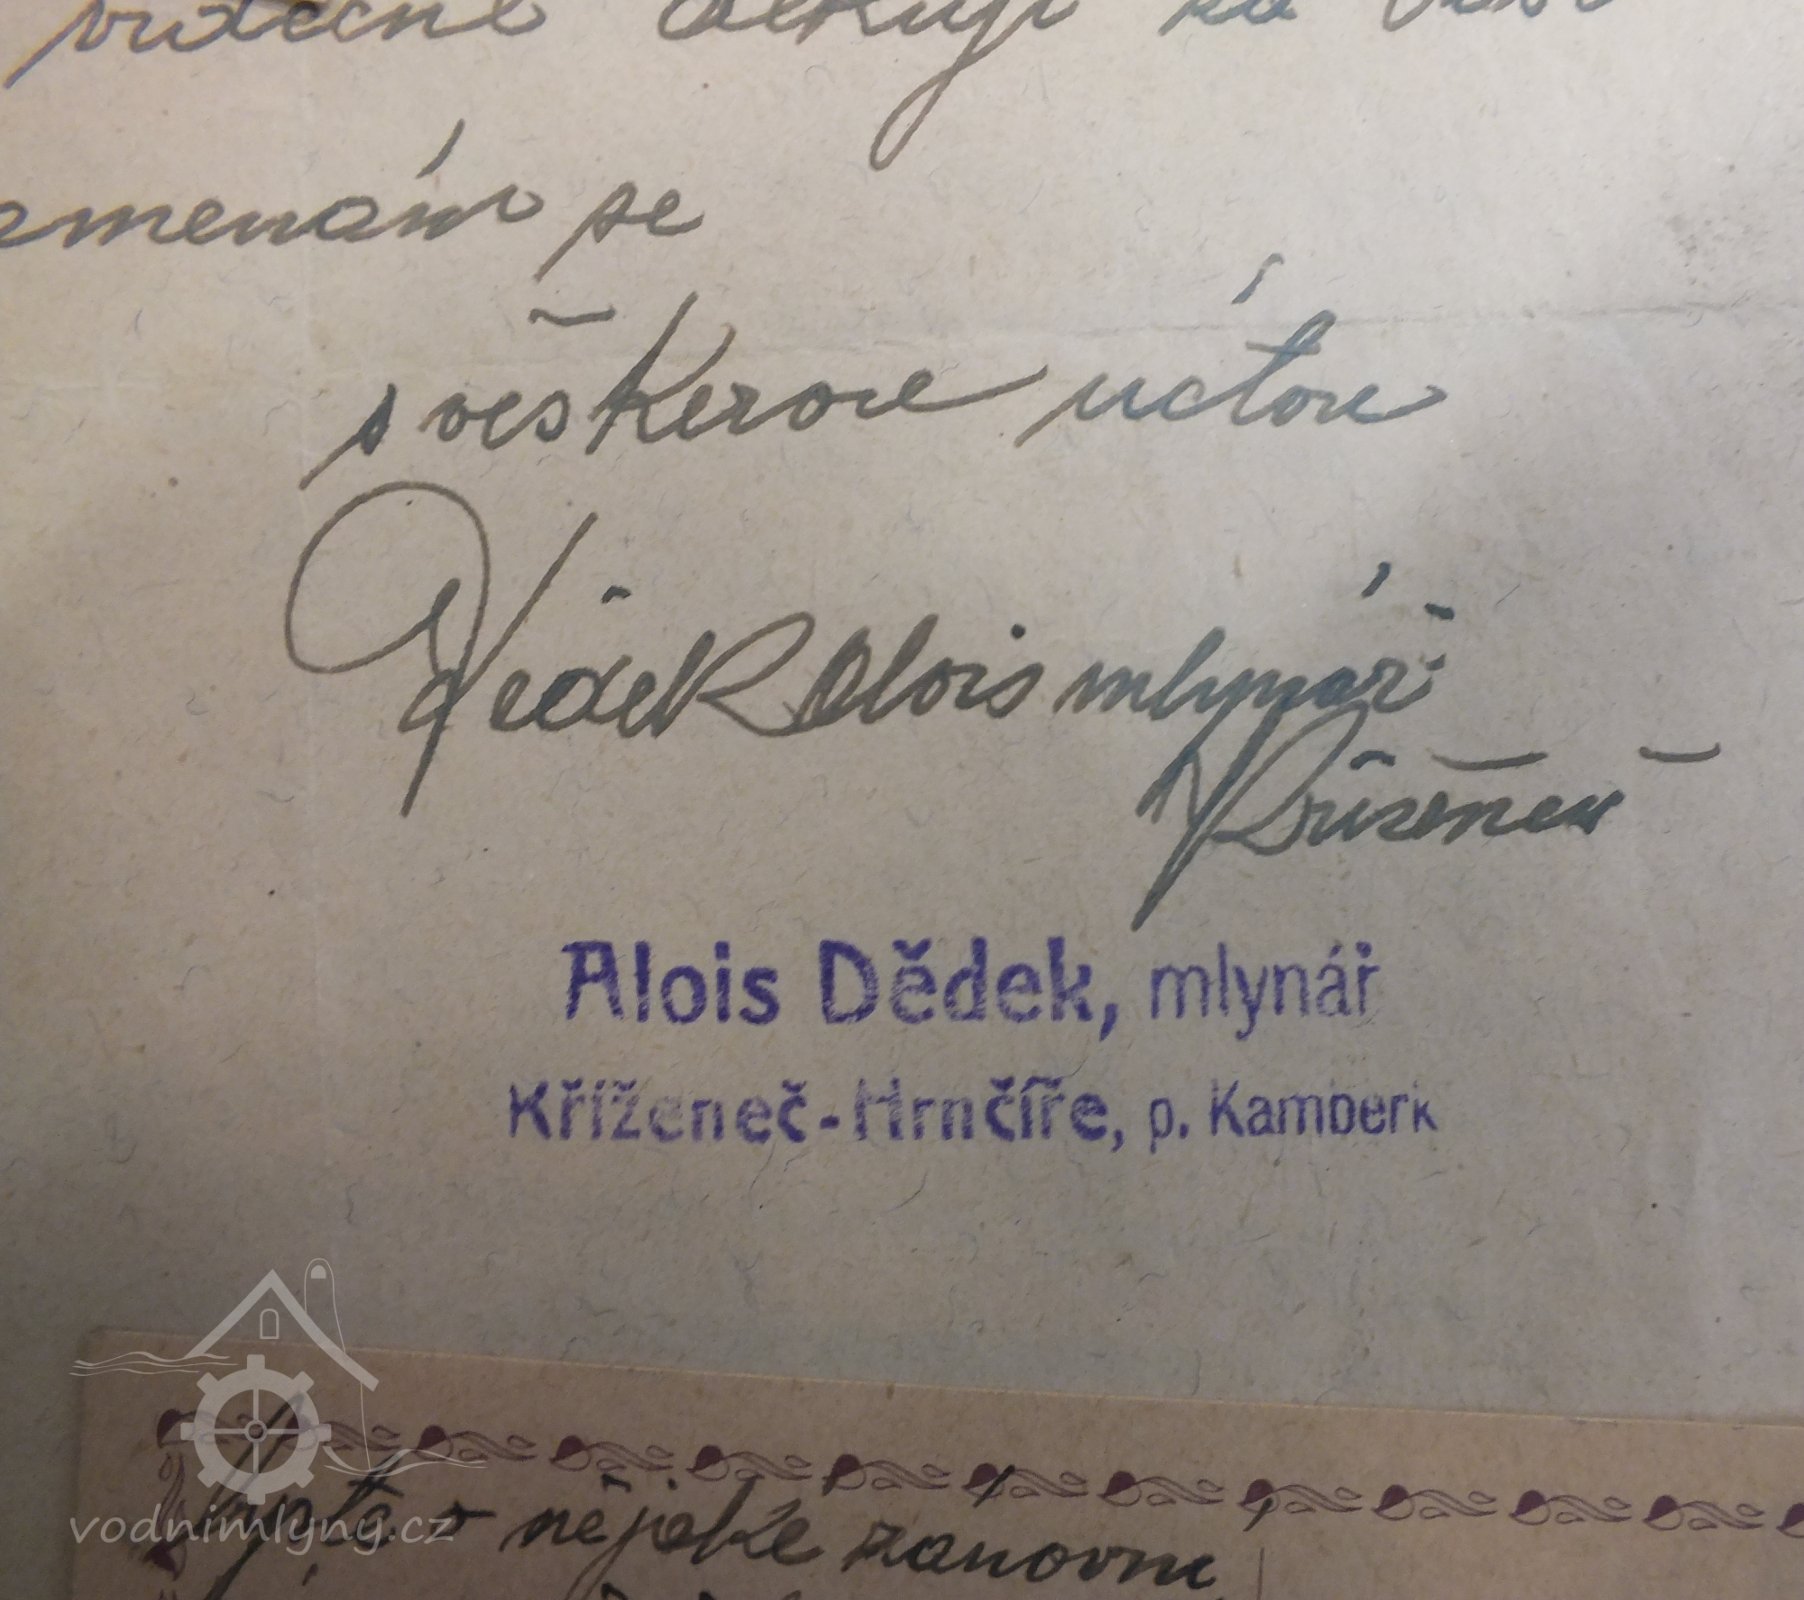 vděčně děkuji za Vaše
amenám se
s veškerou úctou
Dědek Alois mlynář
Kříženeč
Alois Dědek, mlynář
Kříženeč-Hrnčíře, p. Kamberk
vodnimlyny.cz
o nějaké zánovní